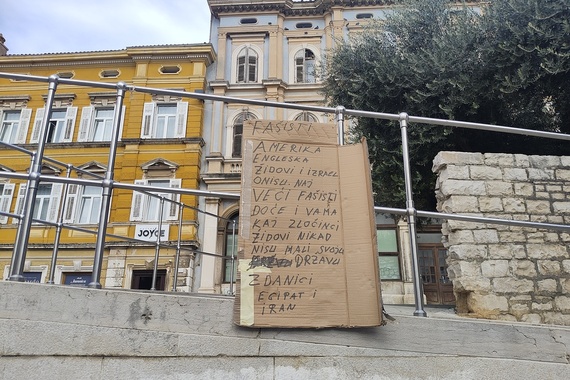 JOYCE
FAŠISTI
AMERIKA
ENGLESKA
ŽIDOVI I IZRAEL
ONISU NAJ
VEĆI FAŠISTI
DOĆE I VAMA
KAJ ZLOČINCI
ŽIDOVI NIKAD
NISU MALI SVOJU
DRŽAVU
ZDANICI
EGIPAT I
IRAN